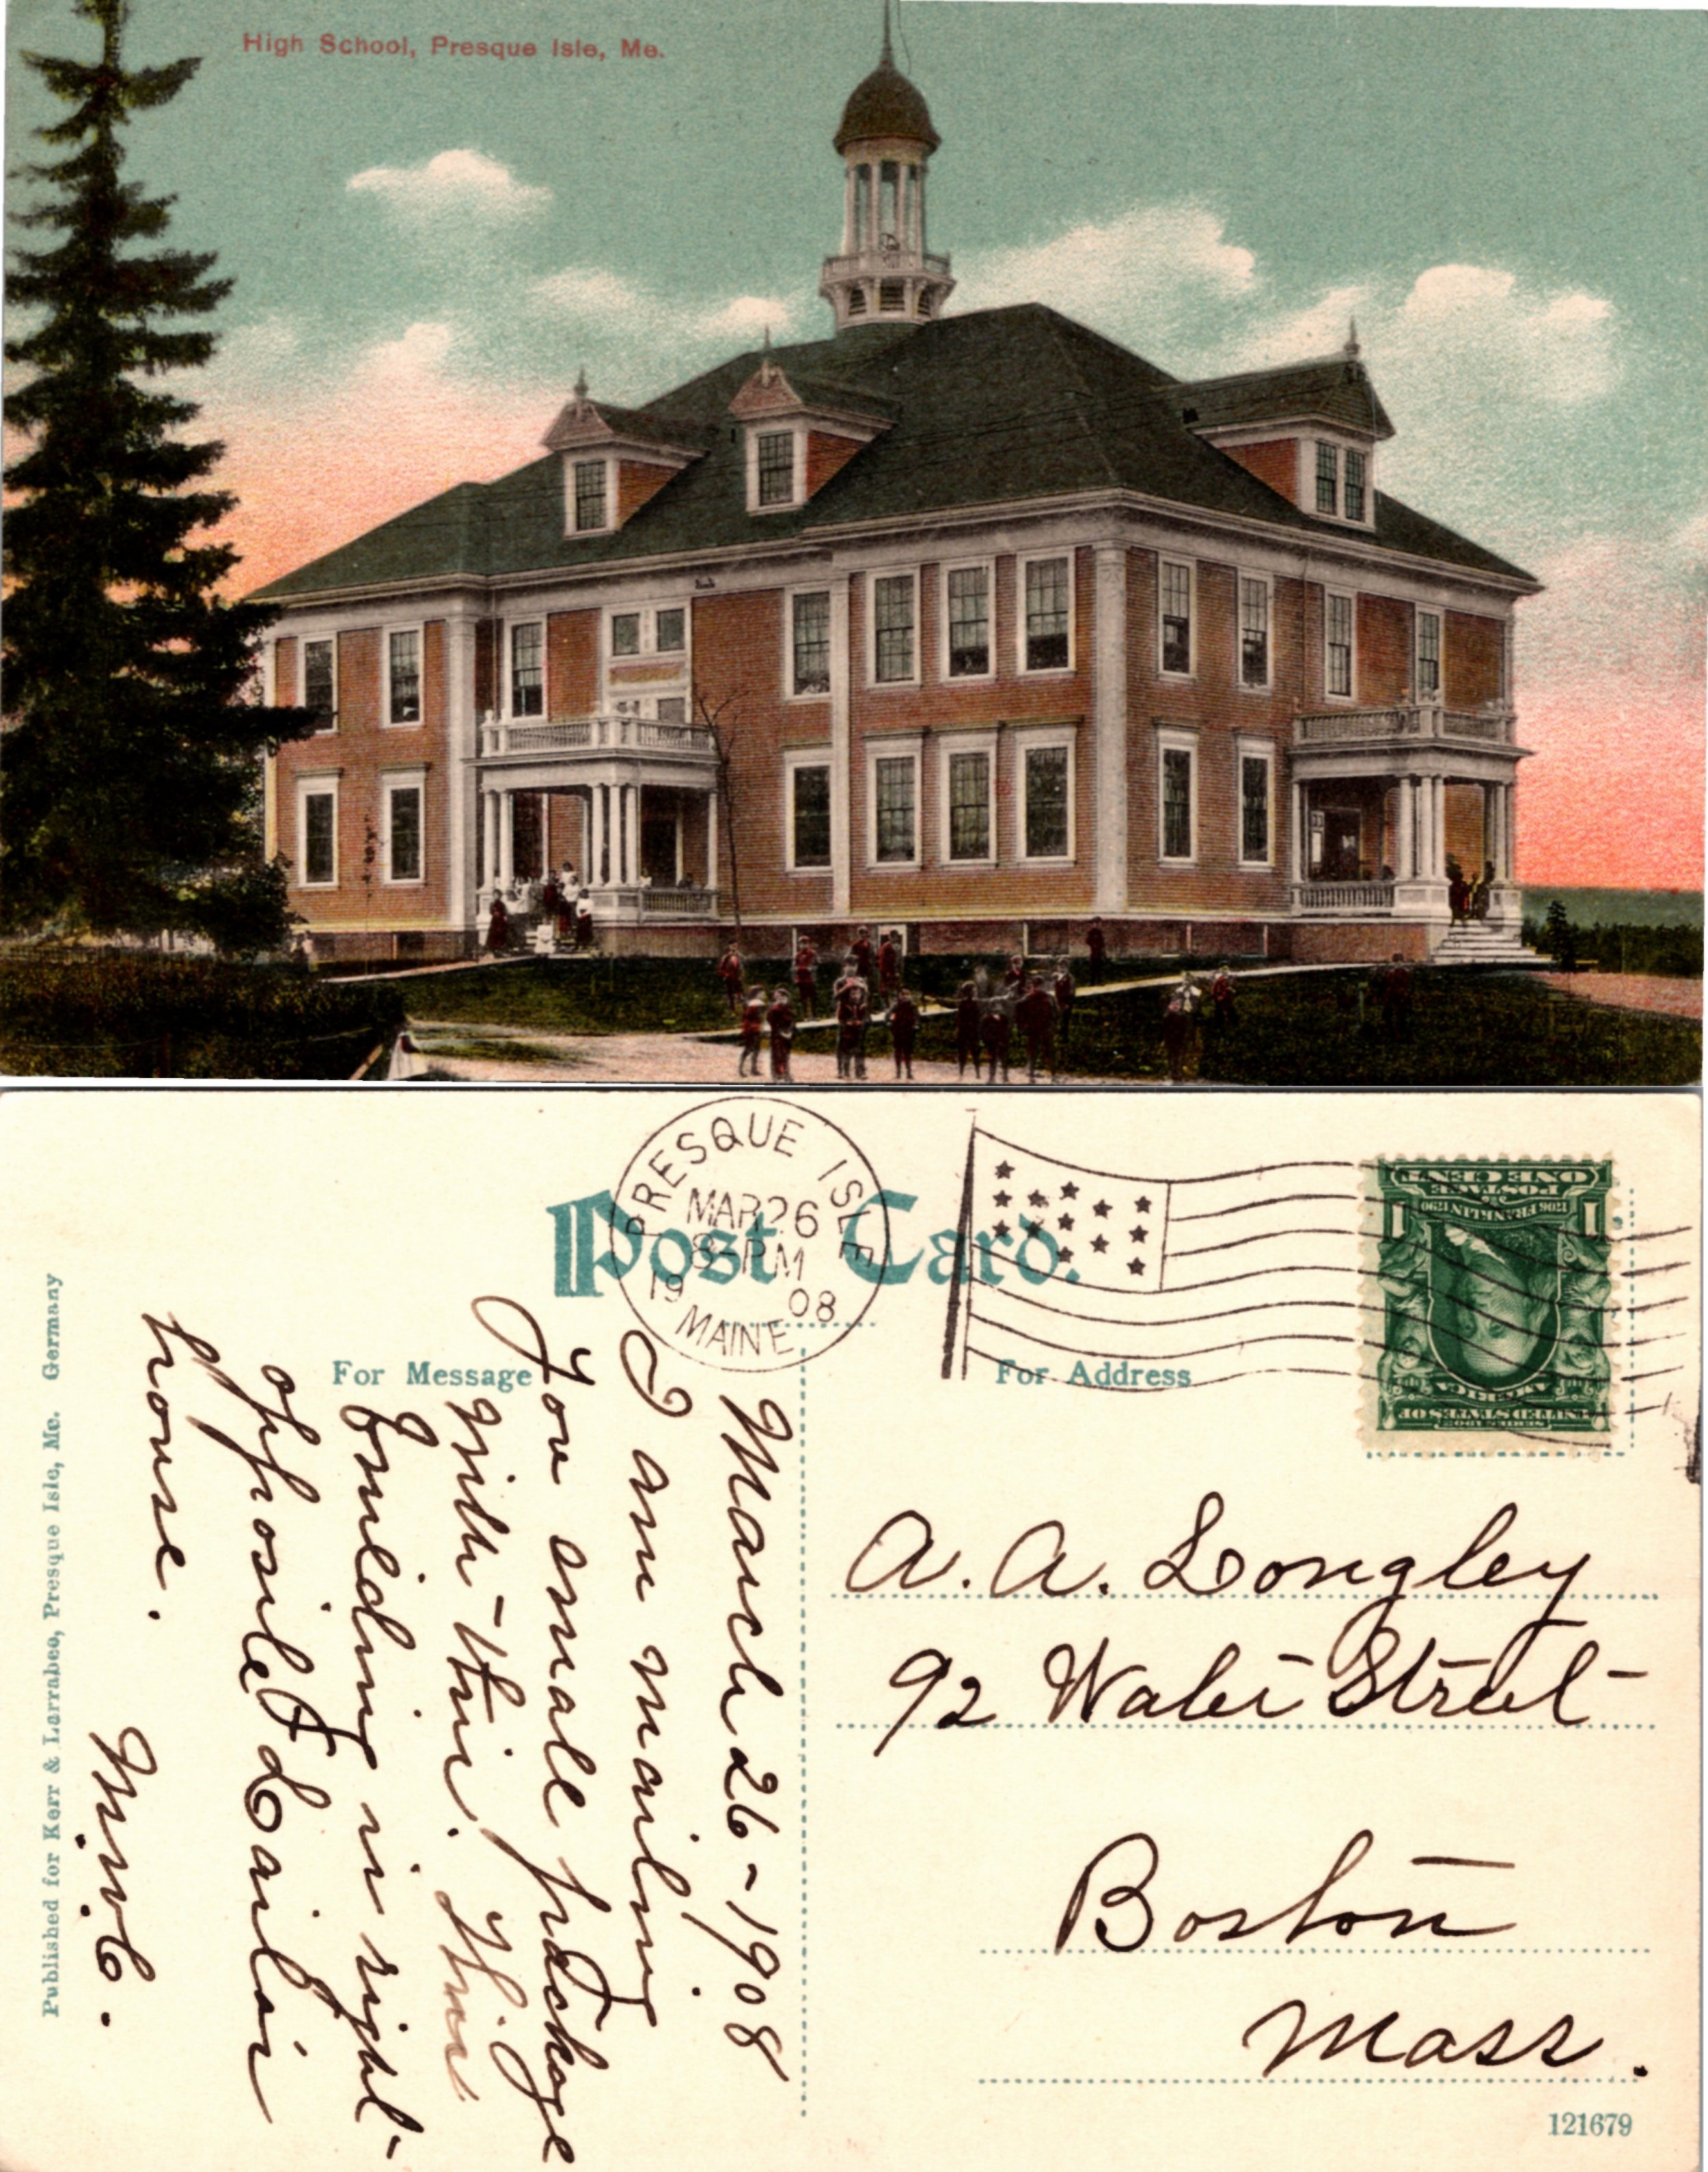 High School, Presque Isle, Me.
Post Card.
PRESQUE ISLE
MAR 26
8-PM
19 08
MAINE
For Message
For Address
SERIES 1902
UNITED STATES OF
AMERICA
1706 FRANKLIN 1790
POSTAGE
ONE CENT
1 1
March 26-1908
I am mailing
You small package
with this. This
building is right
opposite F Lailor
house.
A. A. Longley
92 Water Street
Boston
Mass.
Published for Kerr & Larrabee, Presque Isle, Me. Germany
121679